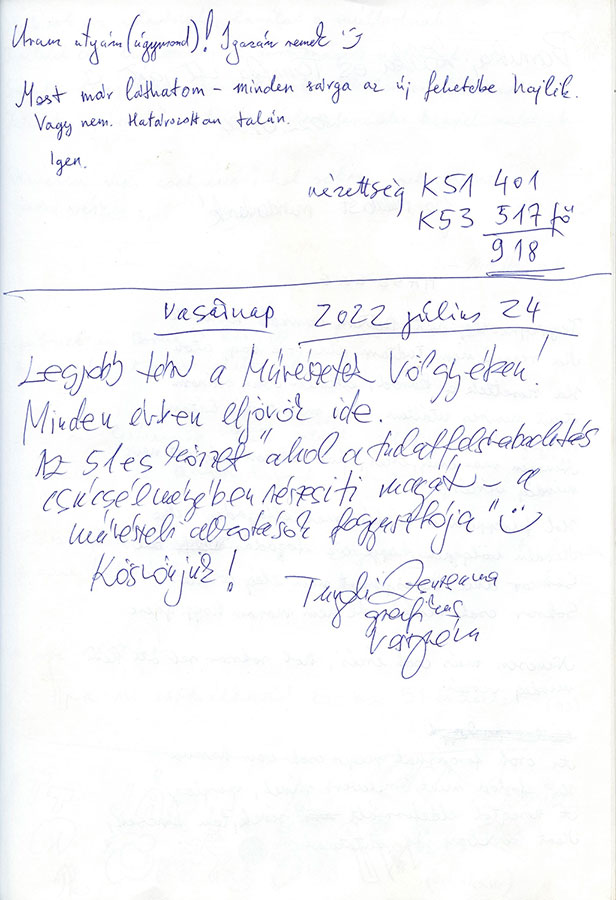 Uram atyám (úgymond)! Igazán remek
Most már láthatom – minden sárga az új fehetébe hajlik.
Vagy nem. Határozottan talán.
Igen.
nézettség K51 401
K53 517 fő
918
Vasárnap 2022 július 24
Legjobb hely a Művészetek Völgyében!
Minden évben eljövök ide.
Az 51 es "körzet" ahol a tudatfelszabadítás
csúcsélményében részesíti magát – a
művészeti alkotások fogyasztója"
Köszönjük!
grafikus